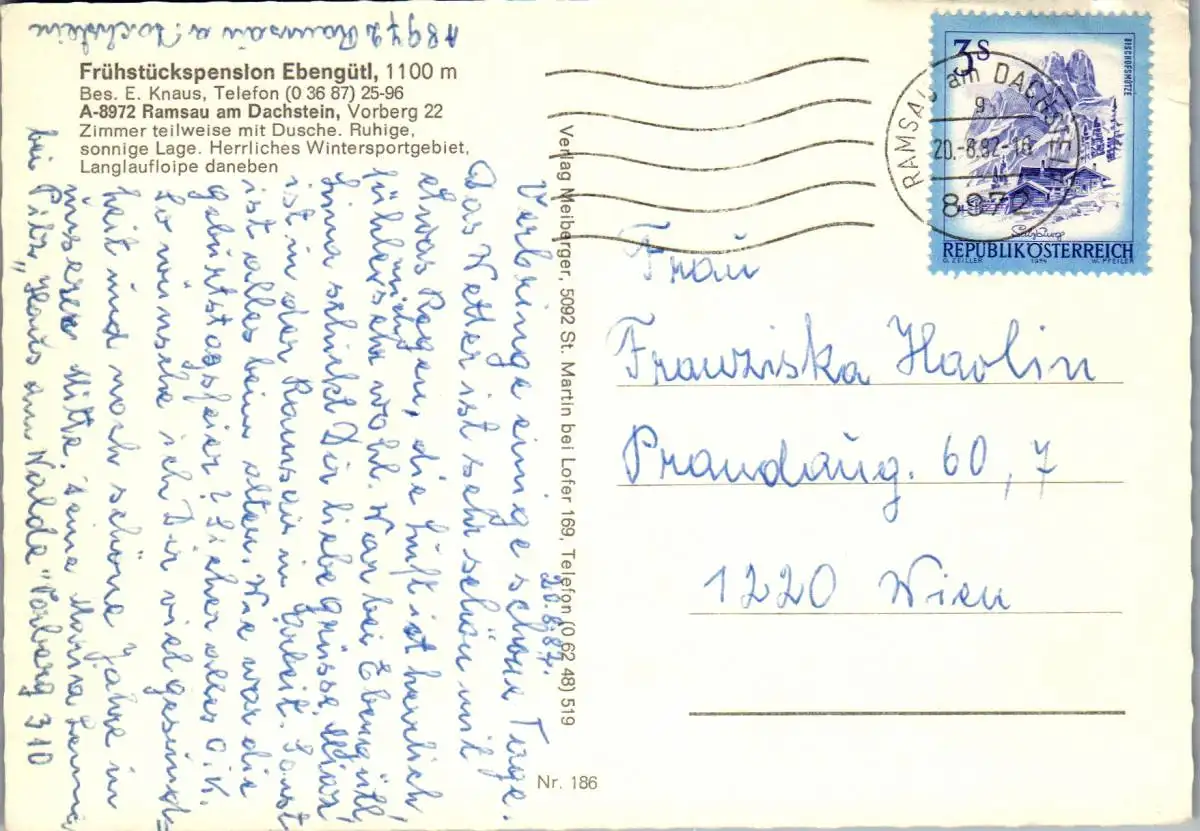 Frühstückspension Ebengütl, 1100 m
Bes. E. Knaus, Telefon (0 36 87) 25-96
A-8972 Ramsau am Dachstein, Vorberg 22
Zimmer teilweise mit Dusche. Ruhige,
sonnige Lage. Herrliches Wintersportgebiet,
Langlaufloipe daneben
Verlag Meiberger, 5092 St. Martin bei Lofer 169, Telefon (0 62 48) 519
Nr. 186
3 S
BISCHOFSMÜTZE
Salzburg
REPUBLIK ÖSTERREICH
O. ZEILLER 1974 W. PFEILER
RAMSAU am DACHSTEIN
20.-8.82-16
8972
Frau
Franziska Havlin
Prandaug. 60, 7
1220 Wien
20.8.82.
Verbringe einige schöne Tage.
Das Wetter ist sehr schön mit
etwas Regen, die Luft ist herrlich
fühle mich sehr wohl. War bei Ebengütl
schickt Dir liebe Grüsse.
ist in der Ramsau in Arbeit. Sonst
ist alles beim alten. Wie war die
geburtstagsfeier? Sicher alles O.K.
So wünsche ich Dir viel gesund-
heit und noch schöne Jahre in
unserer Mitte. Deine
bei Pilz, "Haus am Walde" Vorberg 310
A 8972 Ramsau a. Dachstein